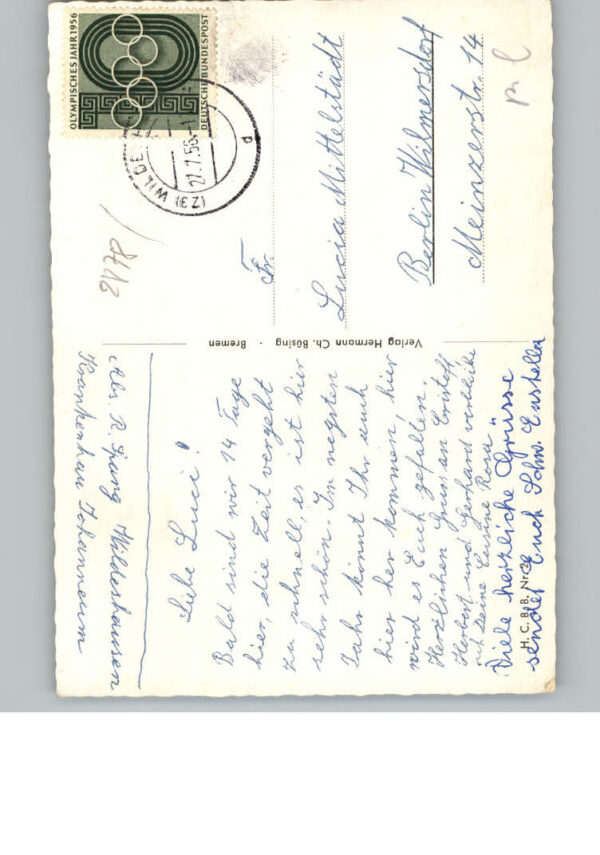 Abs. R. Spang Wildeshausen
Krankenhau Johanneum
Liebe Luci!
Bald sind wir 14 Tage
hier, die Zeit vergeht
zu schnell, es ist hier
sehr schön. Im negsten
Jahr könnt Ihr auch
hier her kommen, hier
wird es Euch gefallen.
Herzlichen Gruss an Cristoff
Herbert und Gerhard verbleibe
ich Deine Cusine Rosa
Viele herzliche Grüsse
sendet Euch Schw.
H. C. B. B. Nr.
Verlag Hermann Ch. Büsing · Bremen
OLYMPISCHES JAHR 1956
DEUTSCHE BUNDESPOST
(23) WILDE
27.7.56-1
a
Fr.
Lucia Mittelstädt
Berlin Wilmersdorf
Meinzerstr. 14